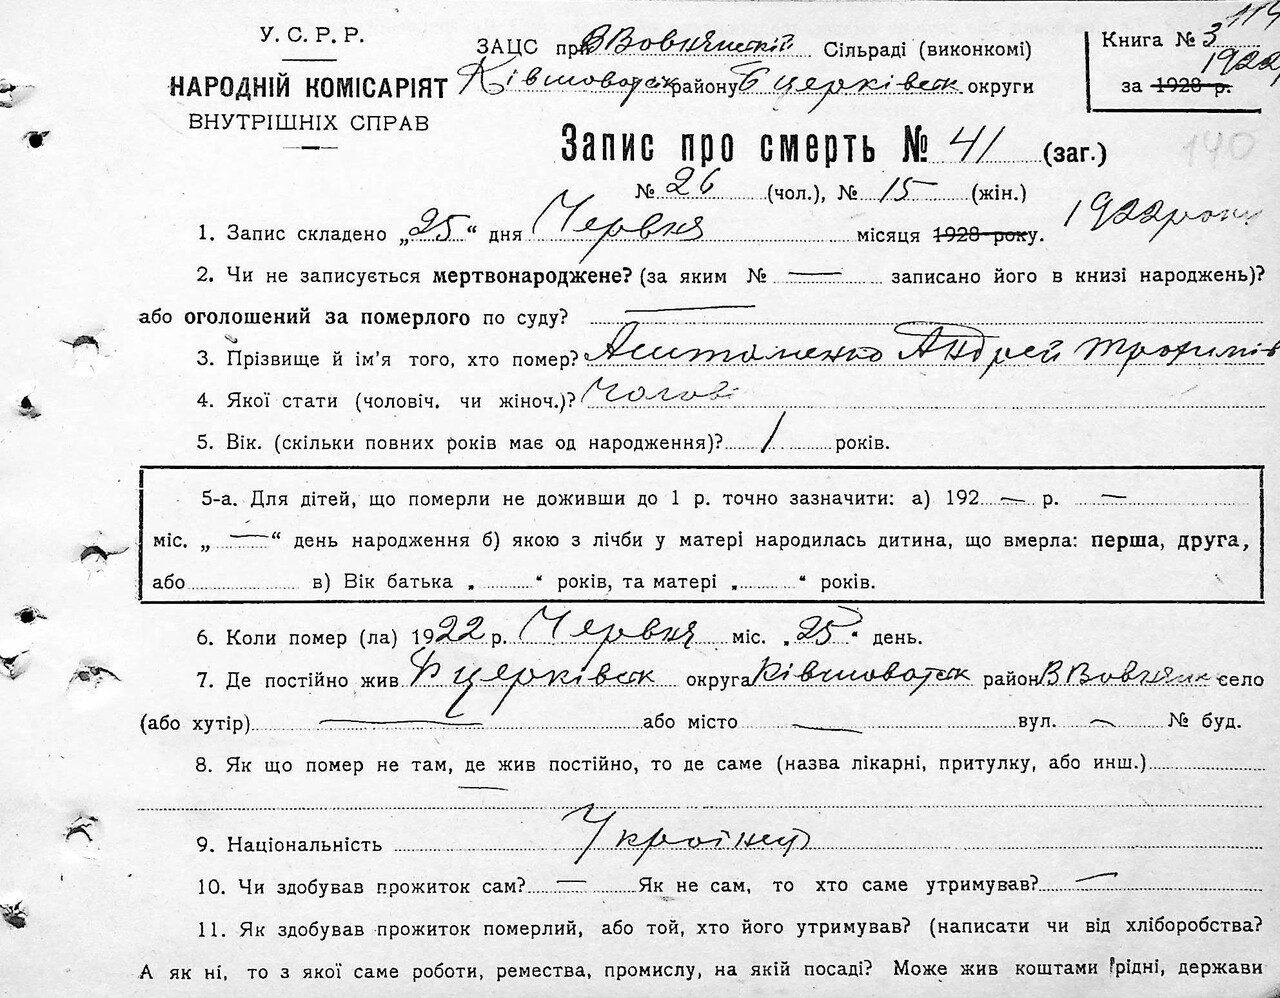 У. С. Р. Р.
НАРОДНІЙ КОМІСАРІЯТ
ВНУТРІШНІХ СПРАВ
ЗАЦС при ВВовнянській Сільраді (виконкомі)
Ківшоватськ району Б церківськ округи
Книга № 3 114
1922
за 1928 р.
Запис про смерть № 41 (заг.)
140
№ 26 (чол.), № 15 (жін.)
1. Запис складено „25“ дня Червня місяця 1928 року. 1922 року
2. Чи не записується мертвонароджене? (за яким № — записано його в книзі народжень)?
або оголошений за померлого по суду? —
3. Прізвище й ім'я того, хто помер? Андрей Трохимів
4. Якої стати (чоловіч. чи жіноч.)? Чолові
5. Вік. (скільки повних років має од народження)? 1 років.
5-а. Для дітей, що померли не доживши до 1 р. точно зазначити: а) 192 — р. —
міс. „ — “ день народження б) якою з лічби у матері народилась дитина, що вмерла: перша, друга,
або в) Вік батька „ “ років, та матері „ “ років.
6. Коли помер (ла) 1922 р. Червня міс. „25“ день.
7. Де постійно жив Б церківськ округа Ківшоватськ район ВВовнянк село
(або хутір) — або місто — вул. — № буд.
8. Як що помер не там, де жив постійно, то де саме (назва лікарні, притулку, або инш.)
—
9. Національність Українець
10. Чи здобував прожиток сам? — Як не сам, то хто саме утримував? —
11. Як здобував прожиток померлий, або той, хто його утримував? (написати чи від хліборобства?
А як ні, то з якої саме роботи, ремества, промислу, на якій посаді? Може жив коштами рідні, держави